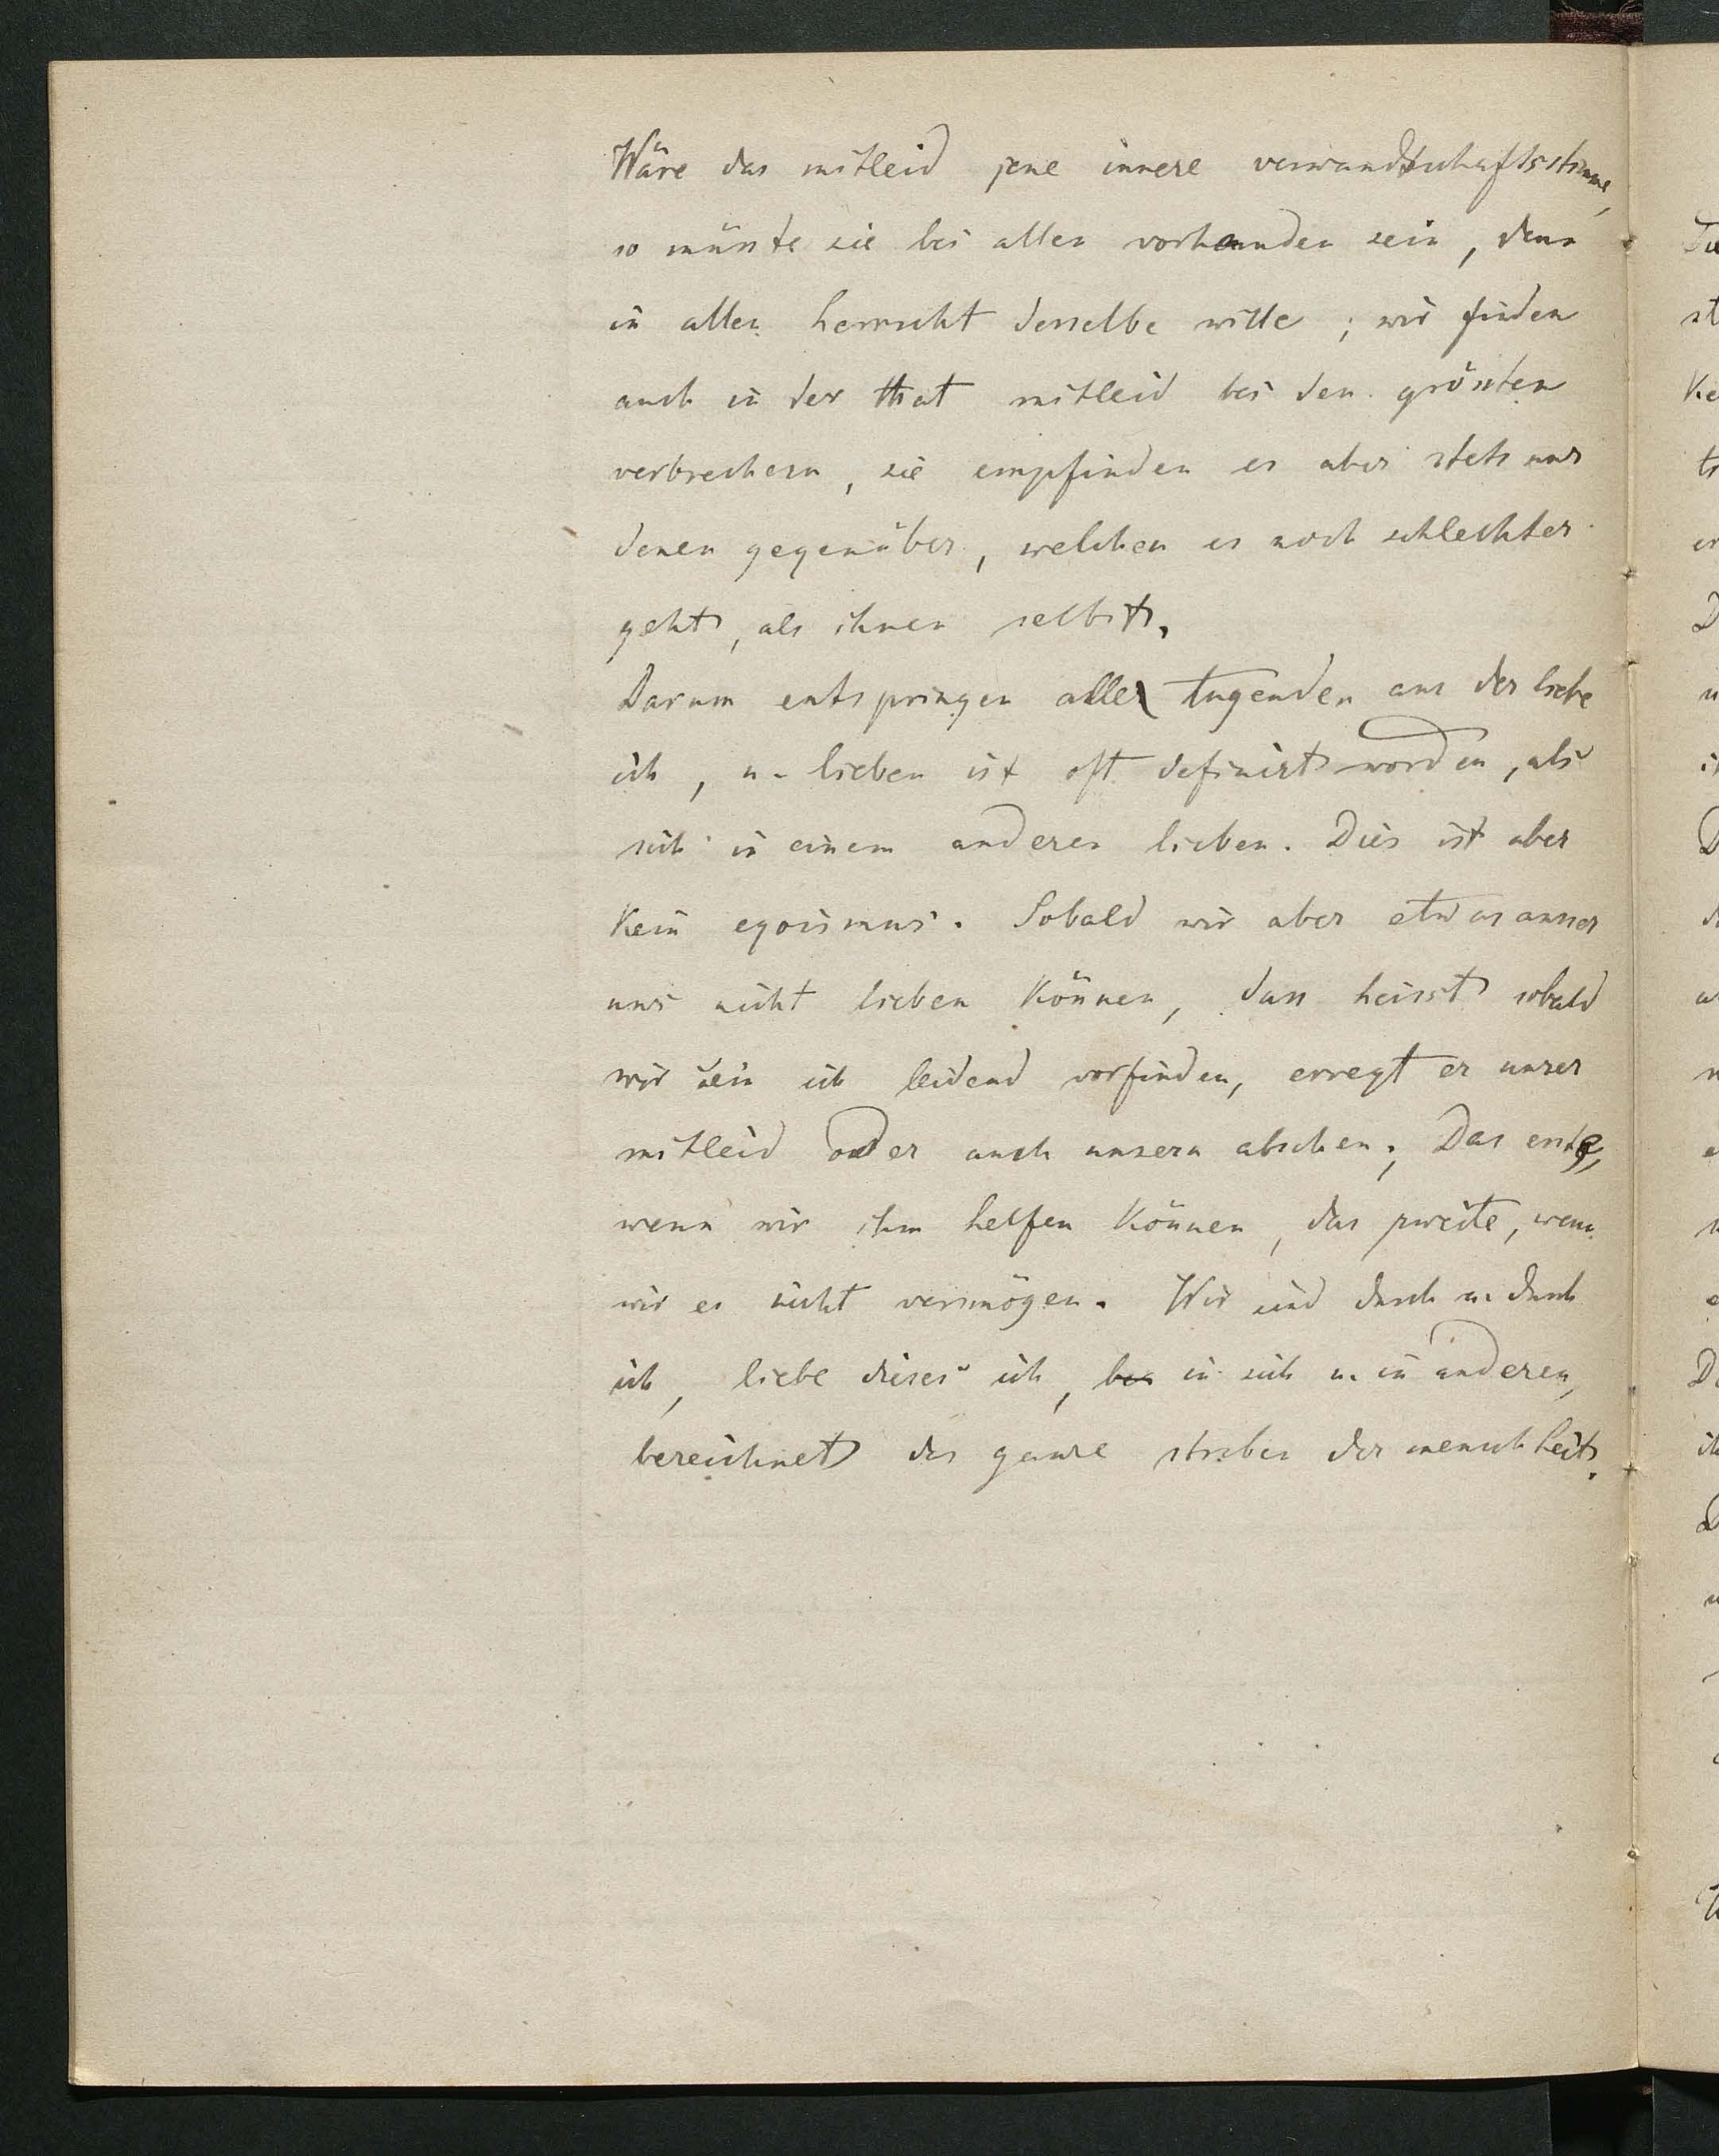 Wäre das mitleid jene innere verwandtschaftsstimme,
so müsste sie bei allen vorhanden sein, denn
in allen herrscht derselbe wille; wir finden
auch in der that mitleid bei den grössten
verbrechern, sie empfinden es aber stets nur
denen gegenüber, welchen es noch schlechter
geht, als ihnen selbst.
Darum entspringen alle tugenden aus der liebe
ich, u. lieben ist oft definirt worden, als
sich in einem anderen lieben. Dies ist aber
kein egoismus. Sobald wir aber etwas ausser
uns nicht lieben können, dass heisst sobald
wir sein ich leidend vorfinden, erregt er unser
mitleid oder auch unsern abscheu; Das erste,
wenn wir ihm helfen können, das zweite, wenn
wir es nicht vermögen. Wir sind durch u. durch
ich, liebe dieses ich, bei in sich u. in anderen,
bezeichnet das ganze streben der menschheit.
Die
st
Ke
tr
er
D
u
D
D